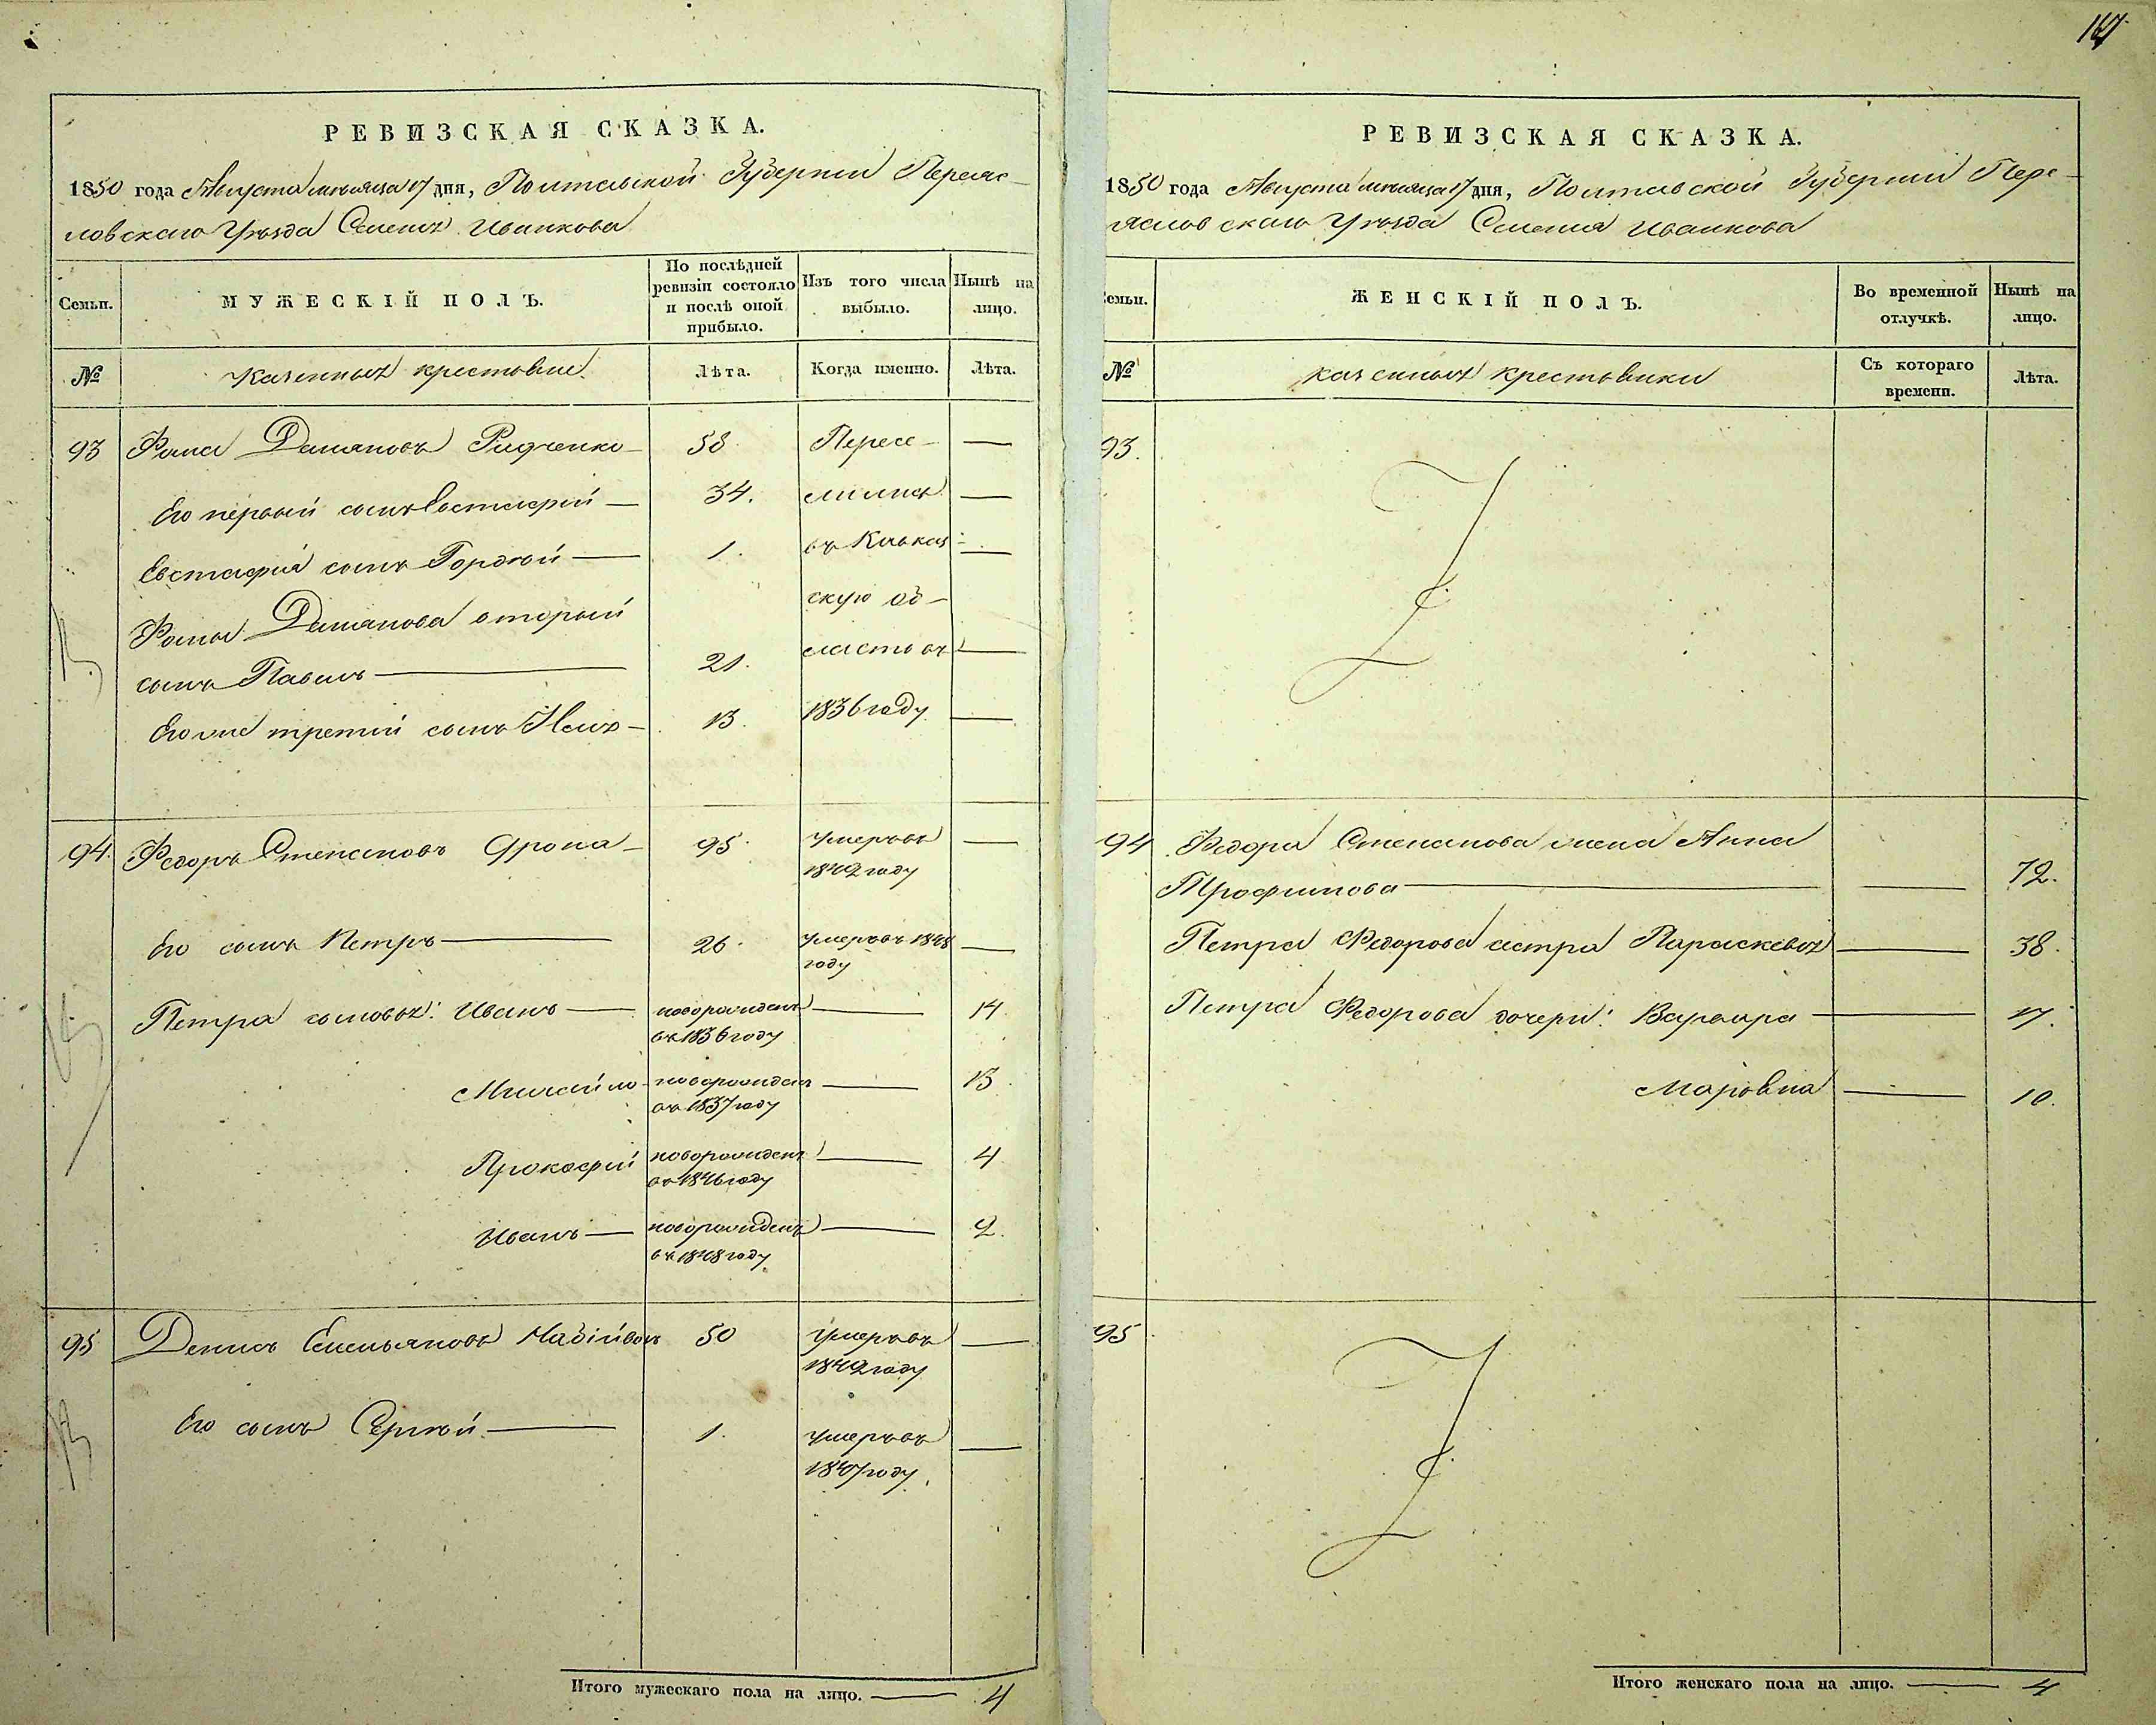 РЕВИЗСКАЯ СКАЗКА.
1850 года Августа месяца 17 дня, Полтавской Губернии Переяс-
ловскаго Уѣзда Селения Иванкова
Семьи.
МУЖЕСКІЙ ПОЛЪ.
По послѣдней ревизіи состояло и послѣ оной прибыло.
Изъ того числа выбыло.
Нынѣ на лицо.
№
казенныхъ крестьянъ.
Лѣта.
Когда именно.
Лѣта.
93 Фома Демяновъ Радченко 58. Пересе- —
Его первый сынъ Евстафій — 34. лились —
Евстафія сынъ Гордѣй — 1. въ Кавказ- —
Фомы Демянова второй скую об-
сынъ Павелъ — 21. ласть въ —
Его же третий сынъ Иель — 13. 1836 году. —
94. Федоръ Степановъ Дрота 95. умеръ въ —
1842 году
Его сынъ Петръ — 26. умеръ въ 1848 —
году
Петра сыновья: Иванъ — новорожденъ — 14.
въ 1836 году
Михайло новорожденъ — 13.
въ 1837 году
Прокофій новорожденъ — 4
въ 1846 году
Иванъ — новорожденъ — 2.
въ 1848 году
95 Денисъ Емельяновъ 50 умеръ въ —
1842 году
Его сынъ Сергѣй — 1. умеръ въ —
1847 году.
Итого мужескаго пола на лицо. — 4
РЕВИЗСКАЯ СКАЗКА.
1850 года Августа месяца 17 дня, Полтавской Губернии Пере-
яслов скаго Уѣзда Селения Иванкова
емьи.
ЖЕНСКІЙ ПОЛЪ.
Во временной отлучкѣ.
Нынѣ на лицо.
№
казенныхъ крестьянки
Съ котораго времени.
Лѣта.
93.
94 Федора Степанова жена Анна
Трофимова — — 72.
Петра Федорова сестра Параскевья — 38.
Петра Федорова дочери: Варвара — 17.
Марьвна — 10.
95
Итого женскаго пола на лицо. — 4